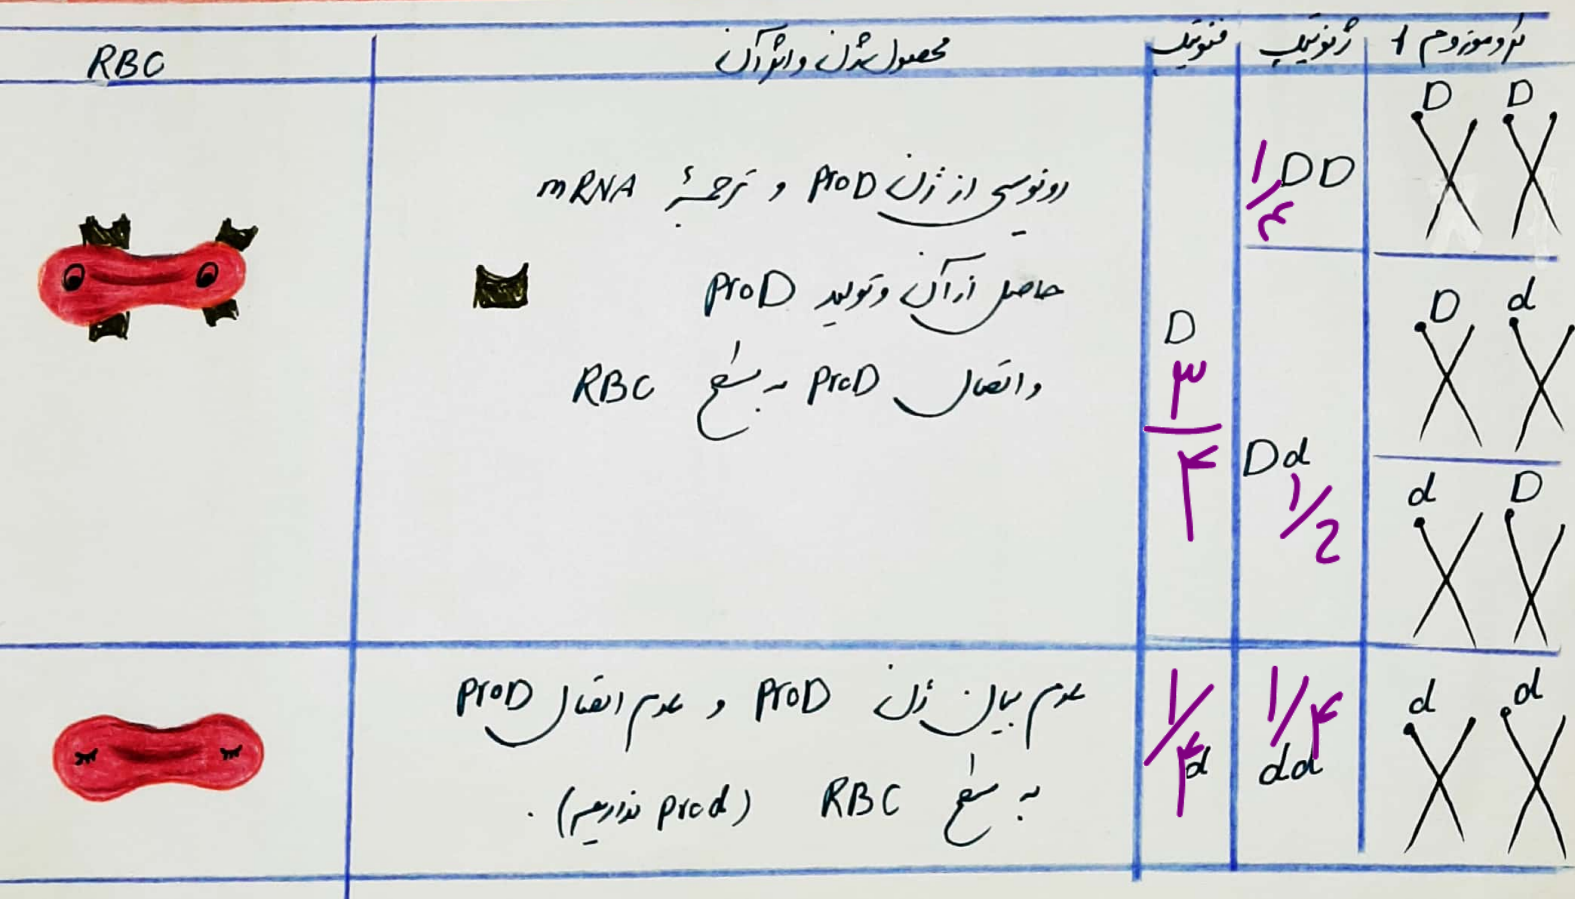 کروموزوم 1 ژنوتیپ فنوتیپ محصول ژن و اثر آن RBC
D D
1/4 DD
رونویسی از ژن ProD و ترجمهٔ mRNA
حاصل از آن و تولید ProD
و اتصال ProD به سطح RBC
D d
D
۳/۴
Dd
1/2
d D
d d
1/۴
dd
1/۴
d
عدم بیان ژن ProD و عدم اتصال ProD
به سطح RBC (Prod نداریم).